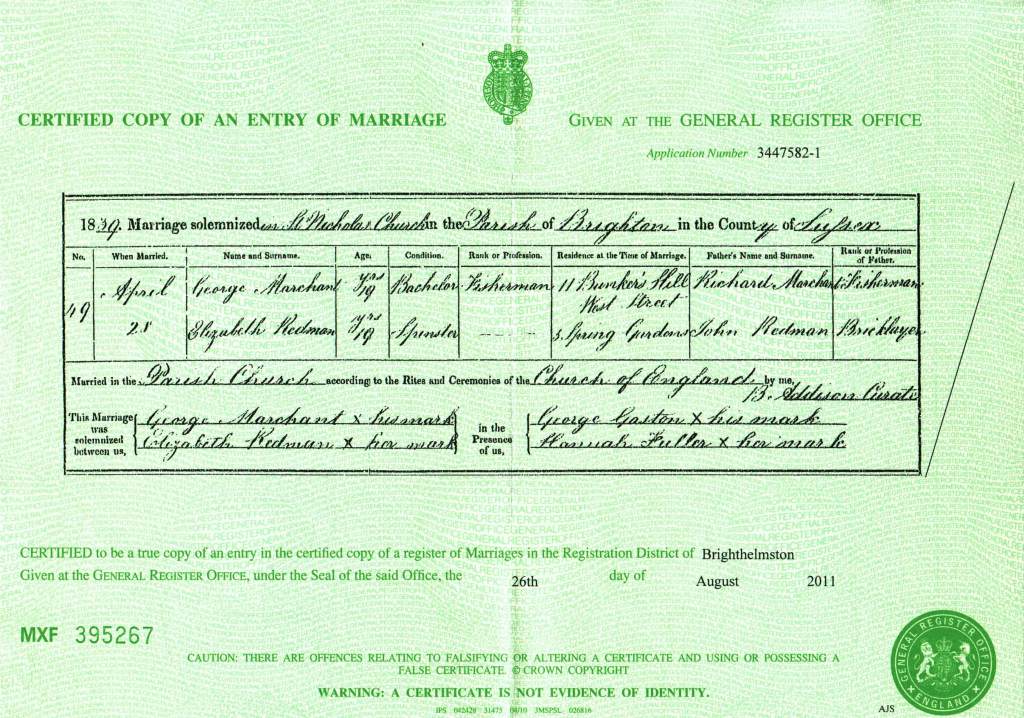 CERTIFIED COPY OF AN ENTRY OF MARRIAGE
GIVEN AT THE GENERAL REGISTER OFFICE
Application Number 3447582-1
1839. Marriage solemnized in St Nicholas Church in the Parish of Brighton in the County of Sussex
No. When Married. Name and Surname. Age. Condition. Rank or Profession. Residence at the Time of Marriage. Father's Name and Surname. Rank or Profession of Father.
49 April 28
George Marchant 19 yrs Bachelor Fisherman 11 Bunker's Hill West Street Richard Marchant Fisherman
Elizabeth Redman 19 yrs Spinster 3, Spring Gardens John Redman Bricklayer
Married in the Parish Church according to the Rites and Ceremonies of the Church of England by me,
B. Addison Curate
This Marriage was solemnized between us,
George Marchant x his mark
Elizabeth Redman x her mark
in the Presence of us,
George Gaston x his mark
Hannah Fuller x her mark
CERTIFIED to be a true copy of an entry in the certified copy of a register of Marriages in the Registration District of Brighthelmston
Given at the GENERAL REGISTER OFFICE, under the Seal of the said Office, the 26th day of August 2011
MXF 395267
CAUTION: THERE ARE OFFENCES RELATING TO FALSIFYING OR ALTERING A CERTIFICATE AND USING OR POSSESSING A
FALSE CERTIFICATE. © CROWN COPYRIGHT
WARNING: A CERTIFICATE IS NOT EVIDENCE OF IDENTITY.
IPS 042428 31473 04/10 3MSPSL 026816
GENERAL REGISTER OFFICE
ENGLAND
AJS